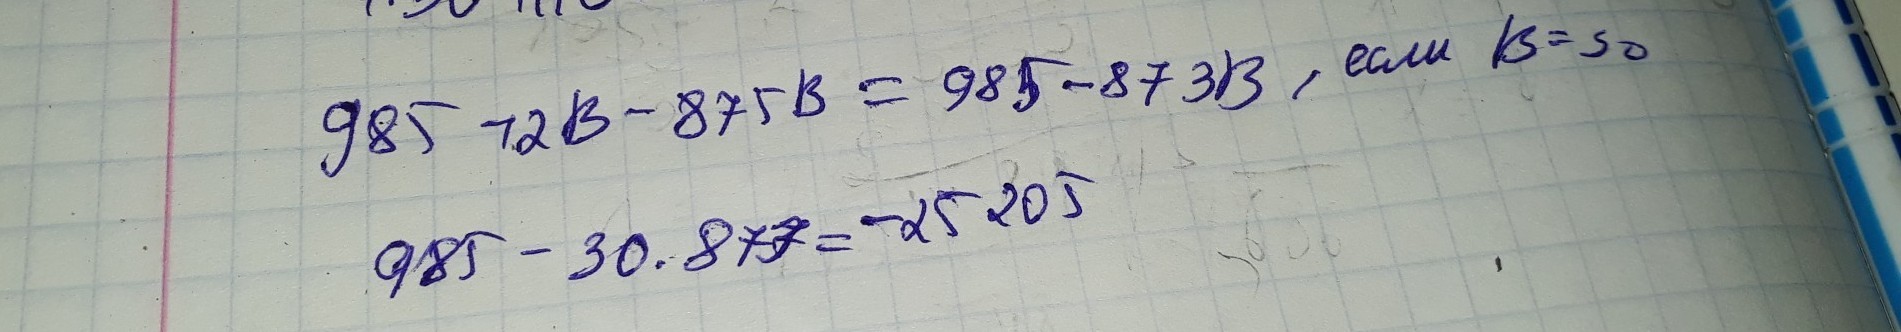 985 + 2B - 875B = 985 - 873B, если B = 30
985 - 30 . 873 = -25205